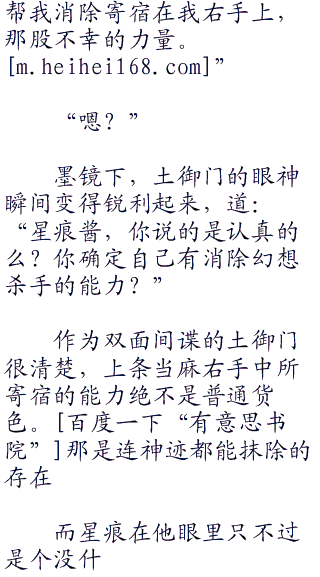 帮我消除寄宿在我右手上，
那股不幸的力量。
[m.heihei168.com]”
“嗯？”
墨镜下，土御门的眼神
瞬间变得锐利起来，道：
“星痕酱，你说的是认真的
么？你确定自己有消除幻想
杀手的能力？”
作为双面间谍的土御门
很清楚，上条当麻右手中所
寄宿的能力绝不是普通货
色。[百度一下“有意思书
院”]那是连神迹都能抹除的
存在
而星痕在他眼里只不过
是个没什